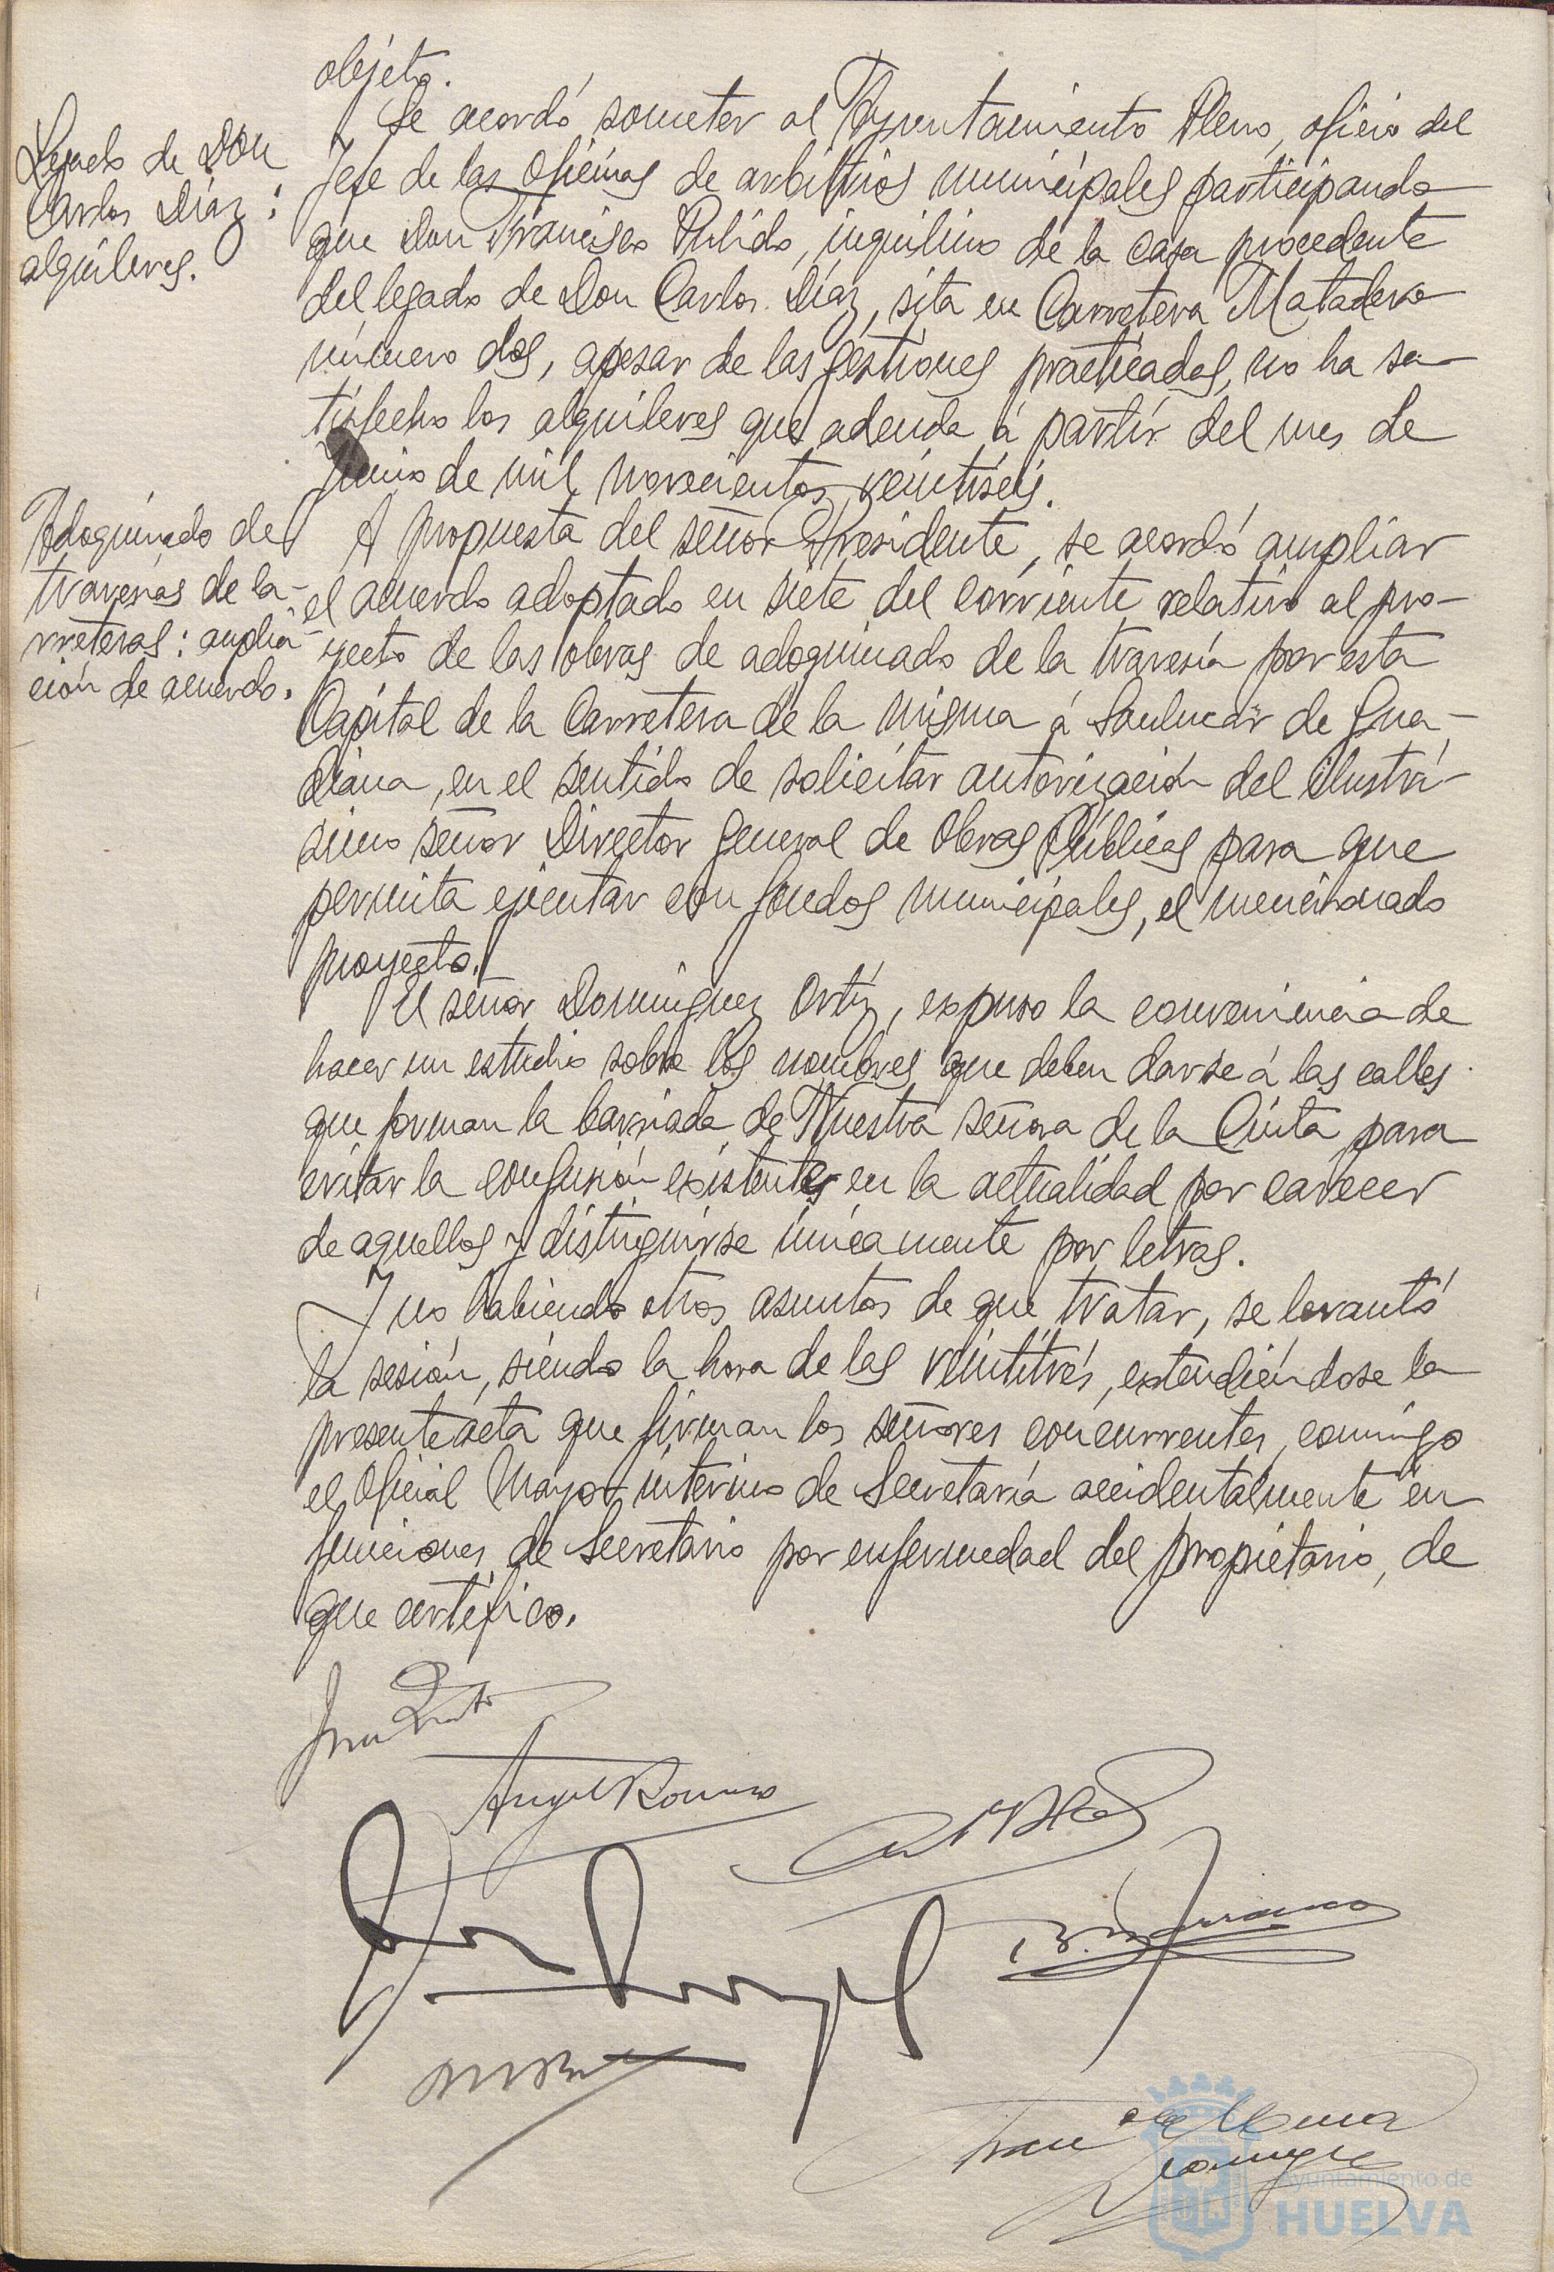 objeto.
Legado de Don
Carlos Díaz:
alquileres.
Se acordó someter al Ayuntamiento Pleno, oficio del
Jefe de las Oficinas de arbitrios municipales participando
que Don Francisco Pulido, inquilino de la casa procedente
del legado de Don Carlos Díaz, sita en Carretera Matadero
número dos, apesar de las gestiones practicadas, no ha sa-
tisfecho los alquileres que adeuda á partir del mes de
Junio de mil novecientos veintiséis.
Adoquinado de
travesías de ca-
rreteras: amplia-
ción de acuerdo.
A propuesta del señor Presidente, se acordó ampliar
el acuerdo adoptado en siete del corriente relativo al pro-
yecto de las obras de adoquinado de la travesía por esta
Capital de la Carretera de la misma á Sanlucar de Gua-
diana, en el sentido de solicitar autorización del ilustrí-
simo señor Director General de Obras Públicas para que
permita ejecutar con fondos municipales, el mencionado
proyecto.
El señor Dominguez Ortiz, expuso la conveniencia de
hacer un estudio sobre los nombres que deben darse á las calles
que forman la barriada de Nuestra señora de la Cinta para
evitar la confusión existente en la actualidad por carecer
de aquellos y distinguirse únicamente por letras.
Y no habiendo otros asuntos de que tratar, se levantó
la sesión, siendo la hora de las veintitrés, extendiéndose la
presente acta que firman los señores concurrentes, conmigo
el Oficial Mayor interino de Secretaría accidentalmente en
funciones de Secretario por enfermedad del propietario, de
que certifico.
Angel Romero
Ayuntamiento de
HUELVA